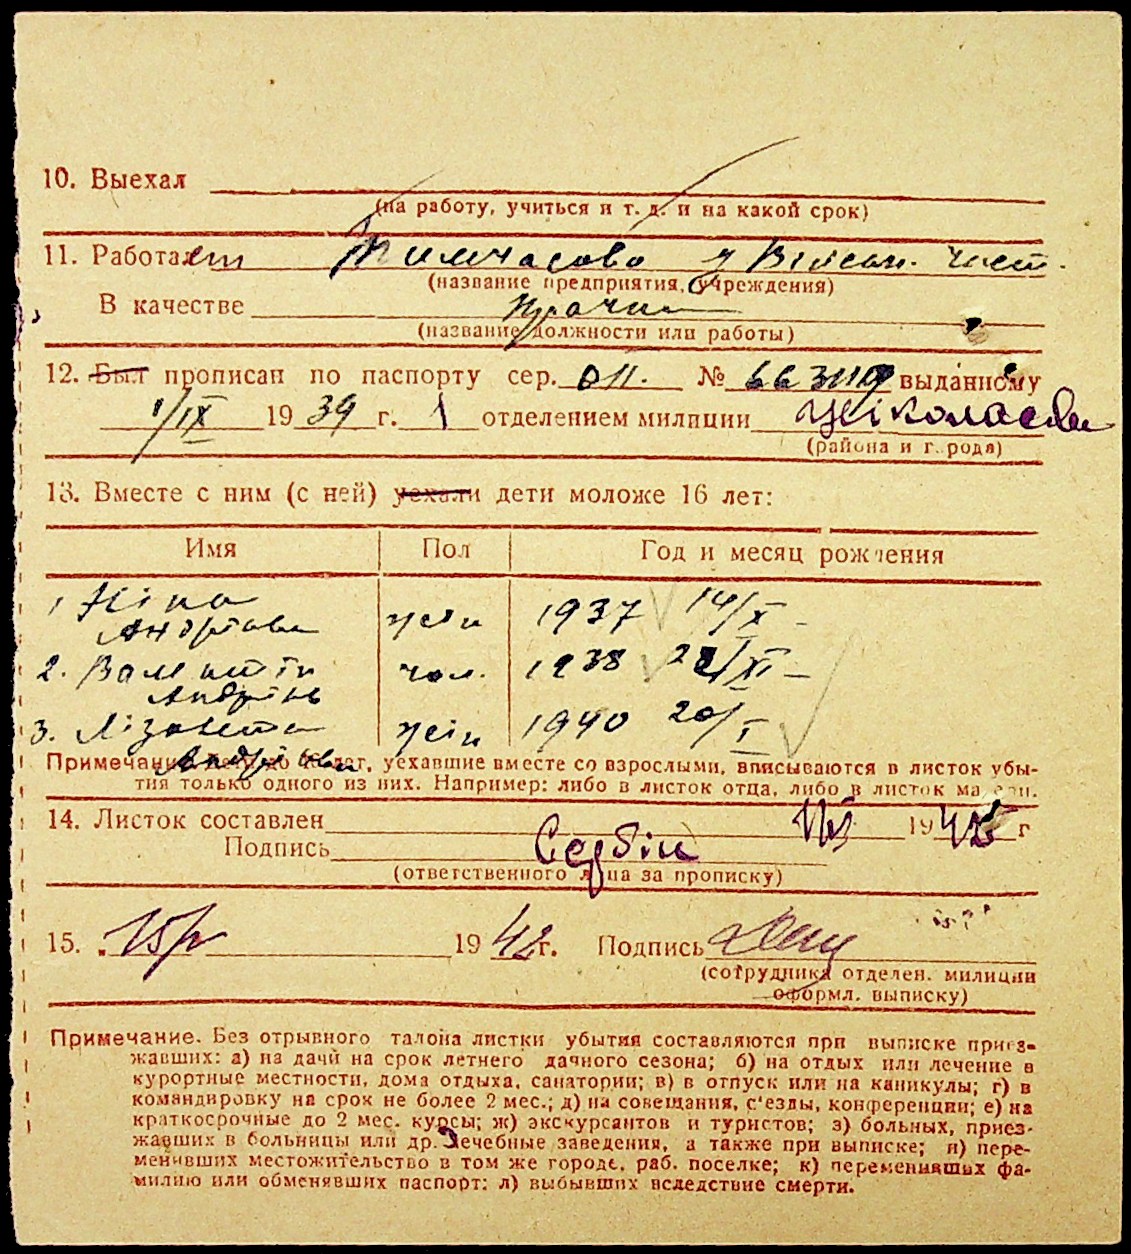 10. Выехал
(на работу, учиться и т. д. и на какой срок)
11. Работает Тимчасово у Військ. част.
(название предприятия, учреждения)
В качестве прачки
(название должности или работы)
12. Был прописан по паспорту сер. ОП. № выданному
1/IX 1939 г. 1 отделением милиции
(района и города)
13. Вместе с ним (с ней) уехали дети моложе 16 лет:
Имя Пол Год и месяц рождения
1 Ніна жін 1937 14/X
Андріївна
2. Валентін чол. 1938 /XI
Андрієв
3. Лізавета жін 1940 20/I
Андріївна
Примечание. уехавшие вместе со взрослыми, вписываются в листок убы-
тия только одного из них. Например: либо в листок отца, либо в листок матери.
14. Листок составлен 1942 г
Подпись Сербін
(ответственного лица за прописку)
15. 1942 г. Подпись
(сотрудника отделен. милиции
оформл. выписку)
Примечание. Без отрывного талона листки убытия составляются при выписке приез-
жавших: а) на дачи на срок летнего дачного сезона; б) на отдых или лечение в
курортные местности, дома отдыха, санатории; в) в отпуск или на каникулы; г) в
командировку на срок не более 2 мес.; д) на совещания, с'езды, конференции; е) на
краткосрочные до 2 мес. курсы; ж) экскурсантов и туристов; з) больных, приез-
жавших в больницы или др. лечебные заведения, а также при выписке; и) пере-
менивших местожительство в том же городе, раб. поселке; к) переменивших фа-
милию или обменявших паспорт; л) выбывших вследствие смерти.